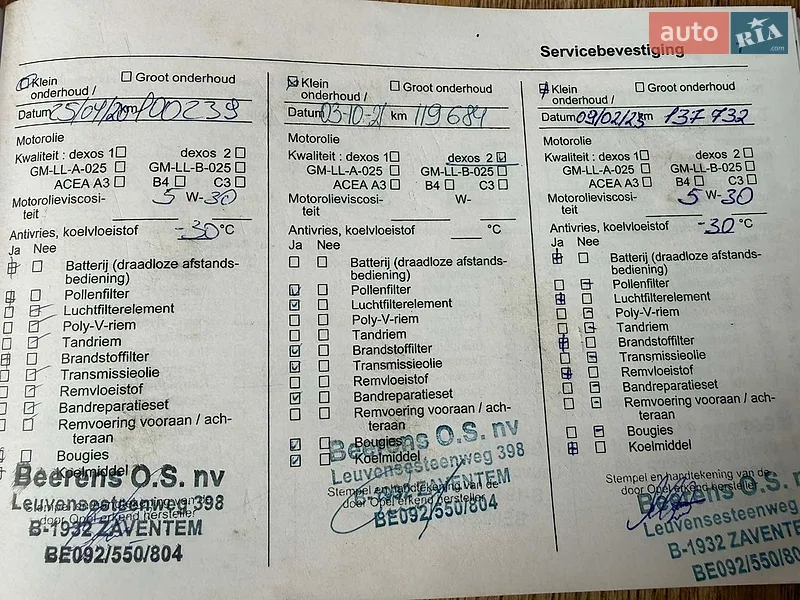 auto RIA .com
Servicebevestiging
Klein onderhoud / Groot onderhoud
Datum 25/04/20 km 100239
Motorolie
Kwaliteit : dexos 1 dexos 2
GM-LL-A-025 GM-LL-B-025
ACEA A3 B4 C3
Motorolieviscosi-
teit 5 W-30
Antivries, koelvloeistof -30 °C
Ja Nee
Batterij (draadloze afstands-
bediening)
Pollenfilter
Luchtfilterelement
Poly-V-riem
Tandriem
Brandstoffilter
Transmissieolie
Remvloeistof
Bandreparatieset
Remvoering vooraan / ach-
teraan
Bougies
Koelmiddel
Beerens O.S. nv
Leuvensesteenweg 398
door Opel erkend hersteller
B-1932 ZAVENTEM
BE092/550/804
Klein onderhoud / Groot onderhoud
Datum 03-10-21 km 119684
Motorolie
Kwaliteit : dexos 1 dexos 2
GM-LL-A-025 GM-LL-B-025
ACEA A3 B4 C3
Motorolieviscosi-
teit W-
Antivries, koelvloeistof °C
Ja Nee
Batterij (draadloze afstands-
bediening)
Pollenfilter
Luchtfilterelement
Poly-V-riem
Tandriem
Brandstoffilter
Transmissieolie
Remvloeistof
Bandreparatieset
Remvoering vooraan / ach-
teraan
Bougies
Koelmiddel
Beerens O.S. nv
Leuvensesteenweg 398
Stempel en handtekening van de
door Opel erkend hersteller
B-1932 ZAVENTEM
BE092/550/804
Klein onderhoud / Groot onderhoud
Datum 09/02/23 km 137732
Motorolie
Kwaliteit : dexos 1 dexos 2
GM-LL-A-025 GM-LL-B-025
ACEA A3 B4 C3
Motorolieviscosi-
teit 5 W-30
Antivries, koelvloeistof -30 °C
Ja Nee
Batterij (draadloze afstands-
bediening)
Pollenfilter
Luchtfilterelement
Poly-V-riem
Tandriem
Brandstoffilter
Transmissieolie
Remvloeistof
Bandreparatieset
Remvoering vooraan / ach-
teraan
Bougies
Koelmiddel
Stempel en handtekening van de
door Opel erkend hersteller
Beerens O.S. n
Leuvensesteenweg
B-1932 ZAVENTE
BE092/550/80